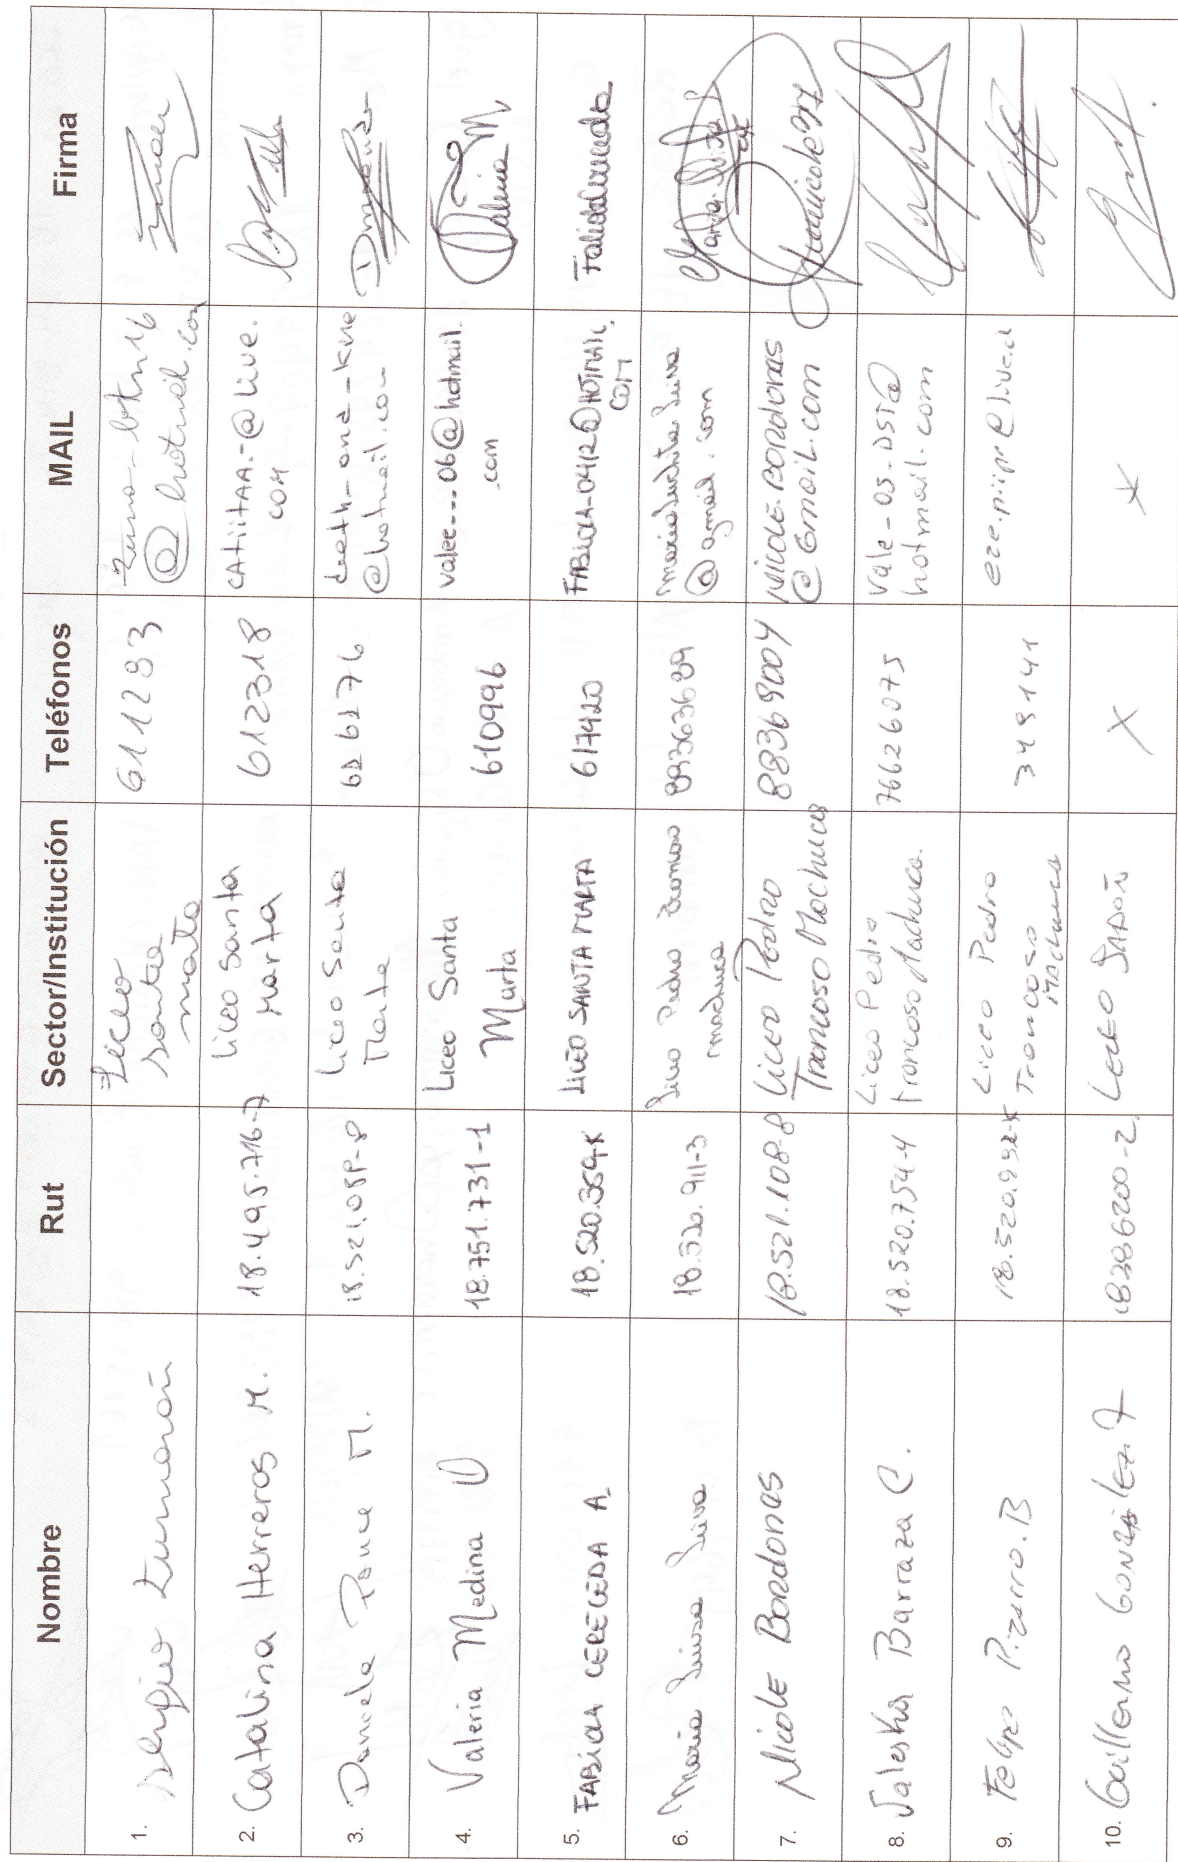 Nombre Rut Sector/Institución Teléfonos MAIL Firma
1. Sergio Liceo
Santa
Marta 611283 @hotmail.com
2. Catalina Herreros M. 18.495.716-7 Liceo Santa
Marta 612318 CAtiitAA.-@Live.
COM
3. Daniela Ponce M. 18.521.058-8 Liceo Santa
Marta @hotmail.com
4. Valeria Medina O 18.751.731-1 Liceo Santa
Marta 610996 valee---06@hotmail.
.com Valeria M
5. FABIOLA CERECEDA A. 18.520.359-K LICEO SANTA MARTA 617420 FABIOLA-0412@HOTMAIL.
COM
6. Maria Luisa Leiva 18.520.911-3 Liceo Pedro Troncoso
Machuca 89363689 marialuchita leiva
@gmail.com Maria Luisa
7. Nicole Bordones 18.521.108-8 Liceo Pedro
Troncoso Machuca 88369004 Nicole.Bordones
@Gmail.com
8. Valeska Barraza C. 18.520.754-4 Liceo Pedro
Troncoso Machuca. 76626075 Vale-05-DST@
hotmail.com
9. Felipe Pizarro.B Liceo Pedro
Troncoso
Machuca 349141
10. Guillermo González 18386200-2 X X